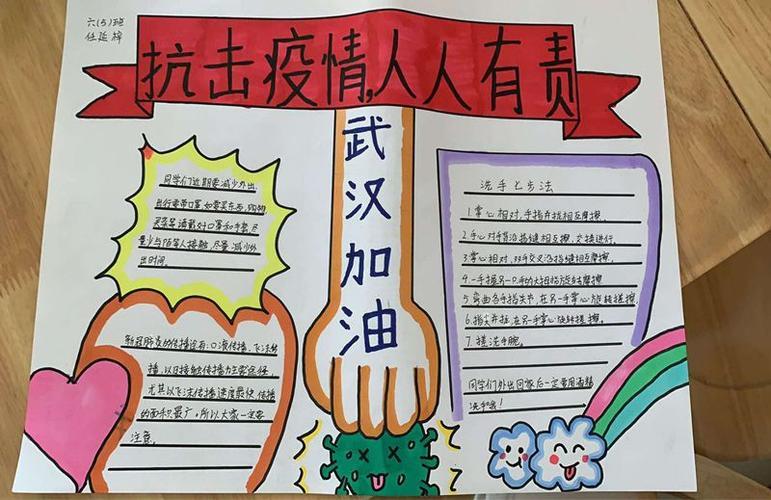 六(5)班
任延梓
抗击疫情,人人有责
武汉加油
同学们近期要减少外出.
出行要带口罩.如需买东西、购物
买菜等.请戴好口罩和手套.尽
量少与陌生人接触.尽量减少外
出时间.
新冠肺炎的传播途有:口液传播、飞沫传
播,以及接触传播为主要途径.
尤其以飞沫传播速度最快传播
的面积最广.所以大家一定要
注意.
洗手七步法
1.掌心相对,手指并拢相互摩擦.
2.手心对手背沿指缝相互摩擦,交换进行.
3.掌心相对,双手交叉沿指缝相互摩擦.
4.一手握另一只手的大拇指旋转摩擦
5.弯曲各手指关节,在另一手掌心旋转搓擦.
6.指尖并拢,在另一手掌心旋转搓擦.
7.搓洗手腕.
同学们外出回家后一定要用
洗手哦!